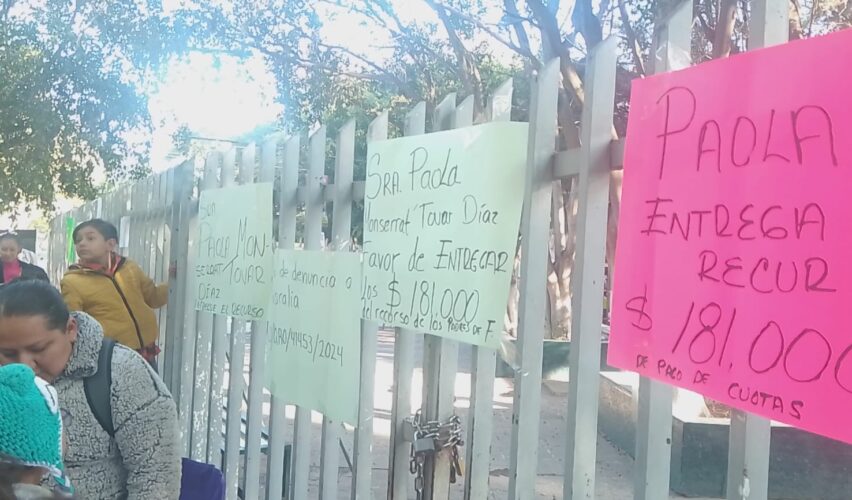 SRA
PAOLA MON-
SERRAT TOVAR
DÍAZ
EL RECURSO
de denuncia o
/44453/2024
SRA. PAOLA
Monserrat Tovar Díaz
FAVOR de ENTREGAR
los $ 181,000
del recurso de los PADRES DE F.
PAOLA
ENTREGA
RECUR
$ 181,000
DE PAGO DE
CUOTAS